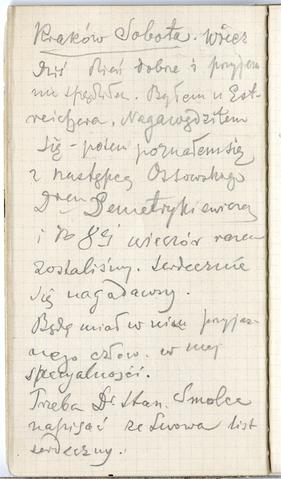 Kraków Sobota. Więc
Dziś dzień dobrze i przyjem
nie spędziłem. Byłem u Est-
reichera. Nagawędziłem
się - potem poznałem się
z następcą Ossowskiego
Drem Demetrykiewiczem
i do 8ej wieczór razem
zostaliśmy. Serdecznie
się nagadawszy.
Będę miał w nim przyjaz-
nego człow. w mej
specjalności.
Trzeba Dr. Stan. Smolce
napisać ze Lwowa list
serdeczny.